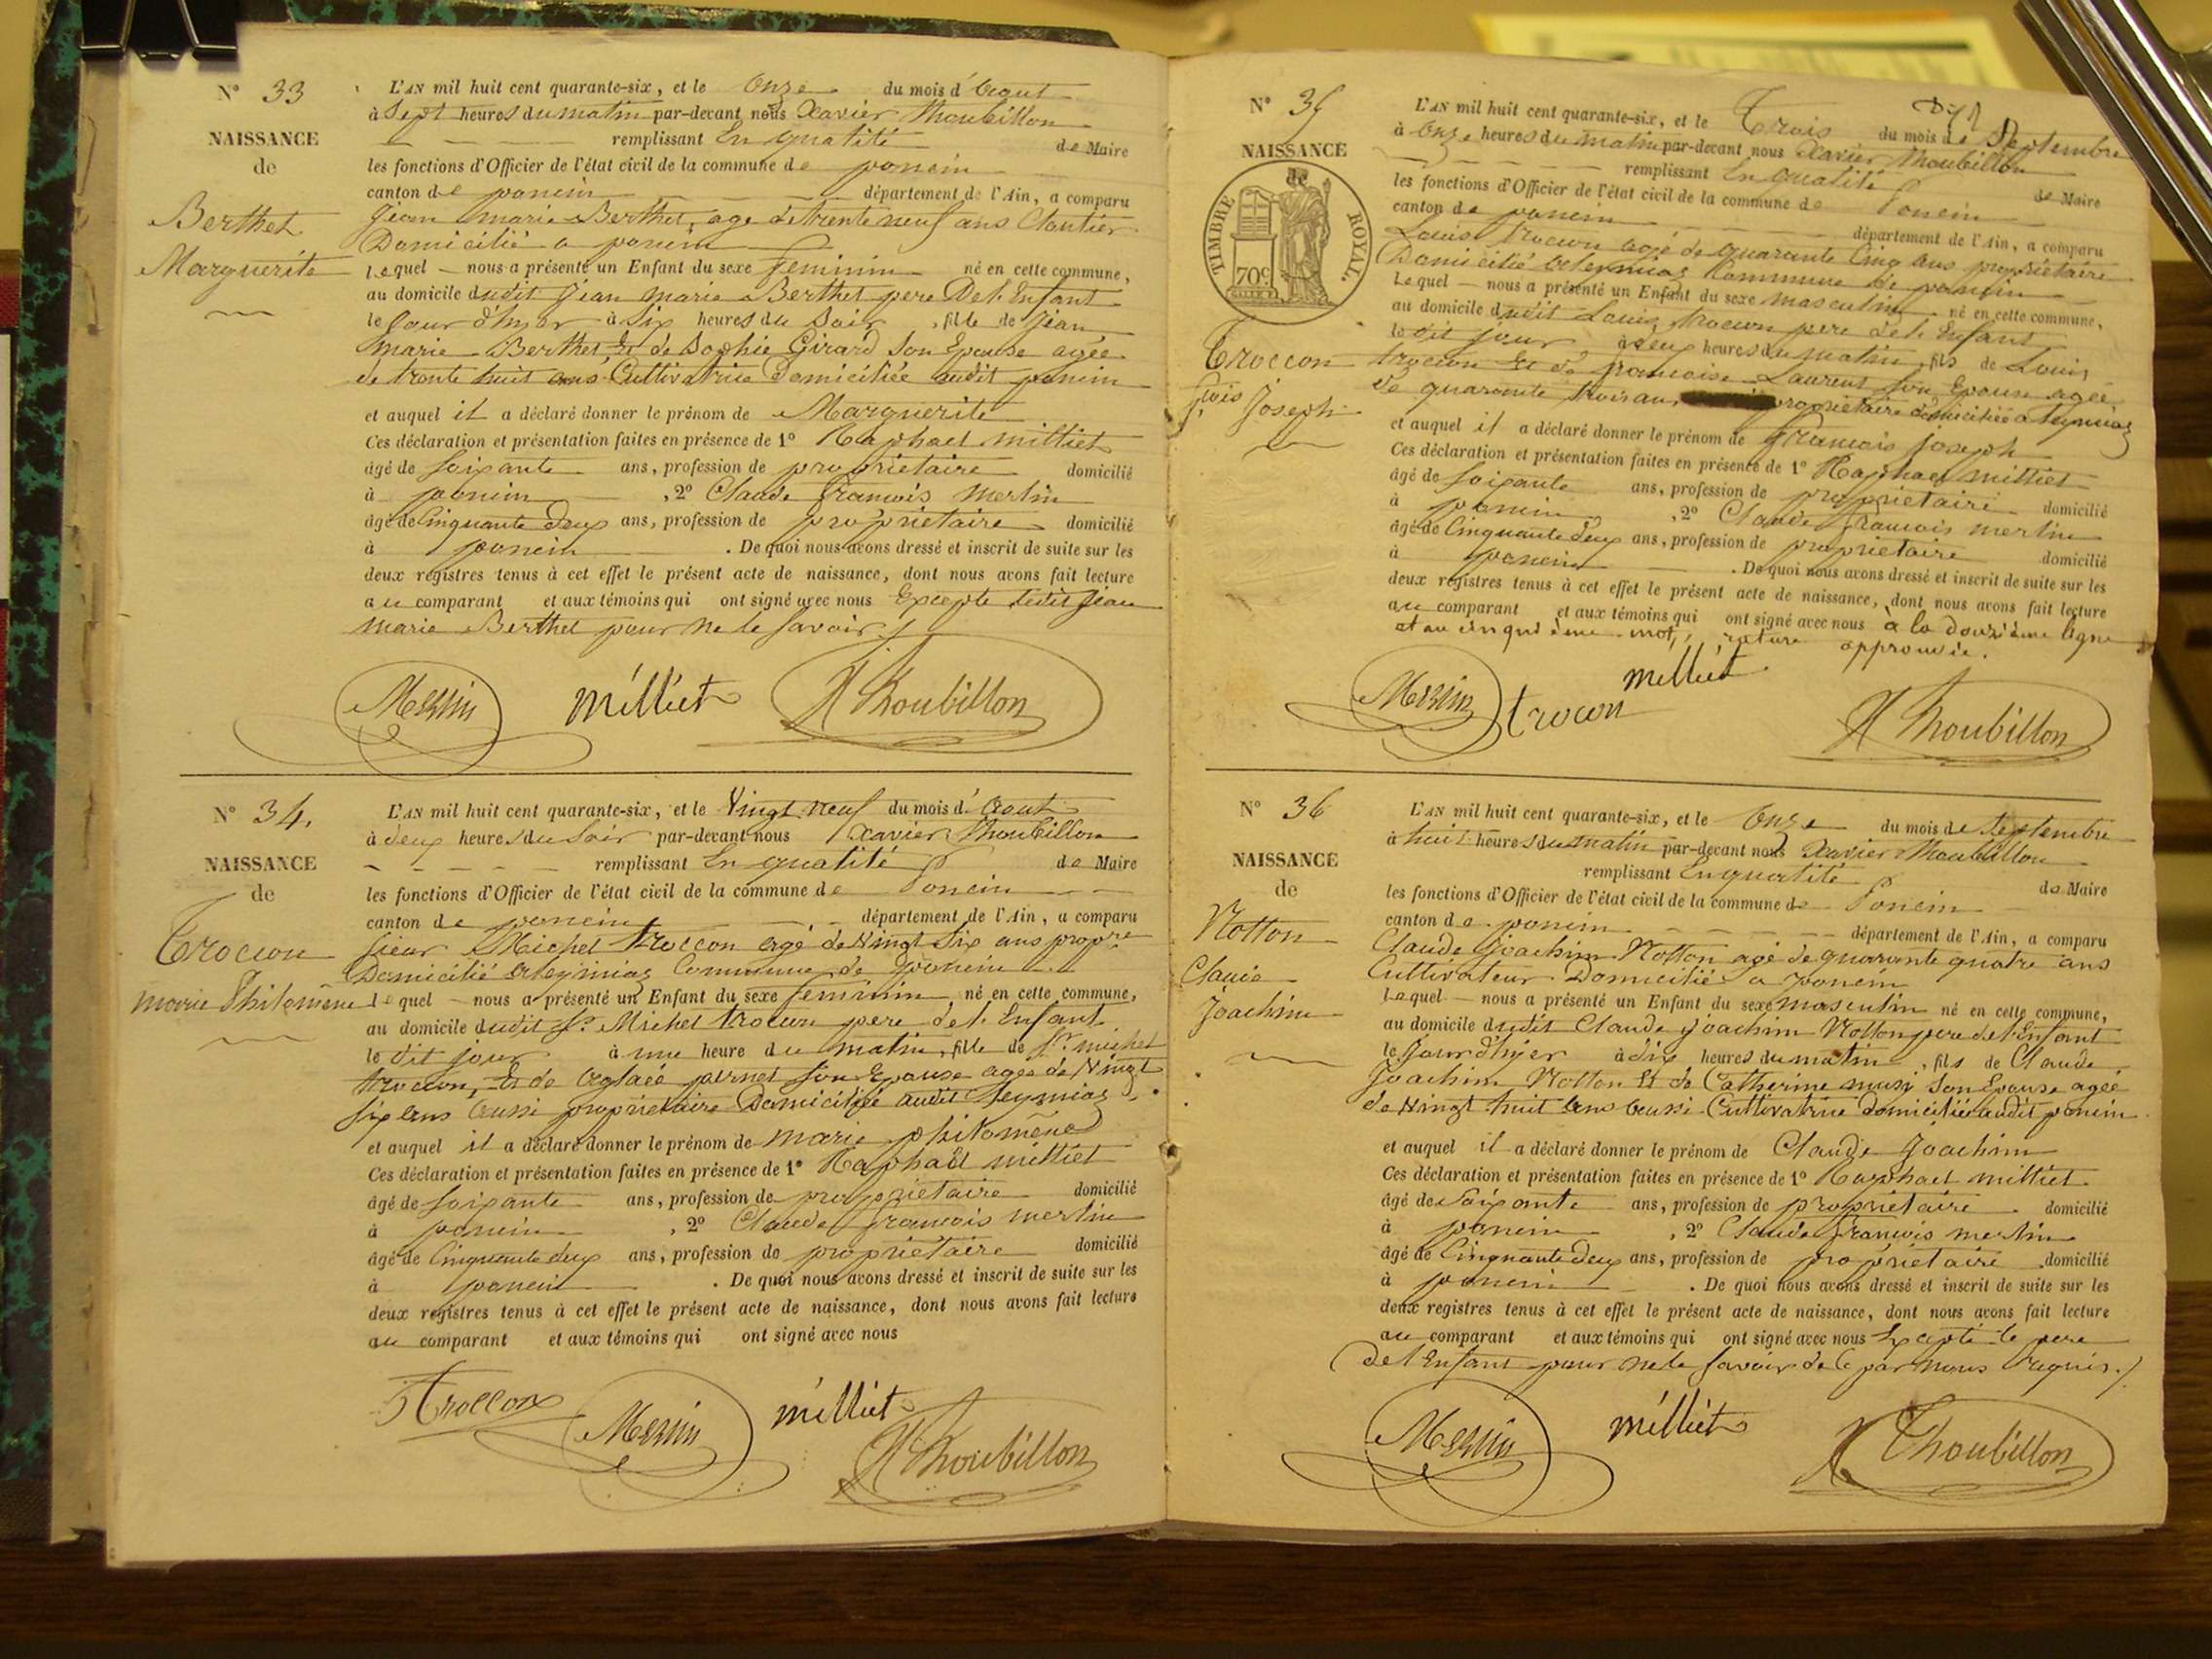 N° 33
NAISSANCE
de
Berthet
Marguerite
L'AN mil huit cent quarante-six, et le Onze du mois d'Aout
à Sept heures du matin par-devant nous Xavier Thoubillon
remplissant En qualité de Maire
les fonctions d'Officier de l'état civil de la commune de poncin
canton de poncin département de l'Ain, a comparu
Jean marie Berthet, agé de trente neuf ans Cloutier
Domicilié a poncin
Lequel nous a présenté un Enfant du sexe feminin né en cette commune,
au domicile dudit Jean marie Berthet pere De l'Enfant
le Jour d'hyer à Six heures du Soir, fille de Jean
marie Berthet Et de Sophie Girard Son Epouse agée
de trente huit ans Cultivatrice Domiciliée audit poncin
et auquel il a déclaré donner le prénom de Marguerite
Ces déclaration et présentation faites en présence de 1° Raphael milliet
âgé de Soixante ans, profession de propriétaire domicilié
à poncin, 2° Claude francois Merlin
âgé de Cinquante deux ans, profession de propriétaire domicilié
à poncin. De quoi nous avons dressé et inscrit de suite sur les
deux registres tenus à cet effet le présent acte de naissance, dont nous avons fait lecture
au comparant et aux témoins qui ont signé avec nous Excepté ledit Jean
marie Berthet pour ne le savoir
Merlin milliet X Thoubillon
N° 34.
NAISSANCE
de
Troccon
marie Philomène
L'AN mil huit cent quarante-six, et le Vingt neuf du mois d'Aout
à deux heures du Soir par-devant nous Xavier Thoubillon
remplissant En qualité de Maire
les fonctions d'Officier de l'état civil de la commune de Poncin
canton de poncin département de l'Ain, a comparu
Sieur Michel troccon agé de Vingt Six ans propre
Domicilié a leymiaz Commune de poncin
Lequel nous a présenté un Enfant du sexe feminin, né en cette commune,
au domicile dudit Sr Michel trocon pere de l'Enfant
le dit jour à une heure du matin, fille de Sr michel
trocon, Et de Aglaée pernet son Epouse agée de Vingt
Six ans Aussi propriétaire Domiciliée audit leymiaz
et auquel il a déclaré donner le prénom de marie philomène
Ces déclaration et présentation faites en présence de 1° Raphaël milliet
âgé de Soixante ans, profession de propriétaire domicilié
à poncin, 2° Claude francois merlin
âgé de Cinquante deux ans, profession de propriétaire domicilié
à poncin. De quoi nous avons dressé et inscrit de suite sur les
deux registres tenus à cet effet le présent acte de naissance, dont nous avons fait lecture
au comparant et aux témoins qui ont signé avec nous
Troccon Merlin milliet X Thoubillon
N° 35
NAISSANCE
de
TIMBRE ROYAL.
70c
Troccon
Joseph
L'AN mil huit cent quarante-six, et le Trois du mois de Septembre
à Onze heures du matin par-devant nous Xavier Thoubillon
remplissant En qualité de Maire
les fonctions d'Officier de l'état civil de la commune de Poncin
canton de poncin département de l'Ain, a comparu
Louis trocon agé de quarante Cinq ans propriétaire
Domicilié a leymiaz Commune de poncin
Lequel nous a présenté un Enfant du sexe masculin né en cette commune,
au domicile dudit Louis trocon pere de l'Enfant
le dit jour à deux heures du matin, fils de Louis
trocon Et de francoise Laurent son Epouse agée
de quarante trois ans, propriétaire domiciliée a leymiaz
et auquel il a déclaré donner le prénom de francois joseph
Ces déclaration et présentation faites en présence de 1° Raphael milliet
âgé de Soixante ans, profession de propriétaire domicilié
à poncin, 2° Claude francois merlin
âgé de Cinquante deux ans, profession de propriétaire domicilié
à poncin. De quoi nous avons dressé et inscrit de suite sur les
deux registres tenus à cet effet le présent acte de naissance, dont nous avons fait lecture
au comparant et aux témoins qui ont signé avec nous à la douzième ligne
et au cinquième mot, rature approuvée.
Merlin trocon milliet X Thoubillon
N° 36
NAISSANCE
de
Notton
Claude
Joachim
L'AN mil huit cent quarante-six, et le Onze du mois de Septembre
à huit heures du matin par-devant nous Xavier Thoubillon
remplissant En qualité de Maire
les fonctions d'Officier de l'état civil de la commune de Poncin
canton de poncin département de l'Ain, a comparu
Claude Joachim Notton agé de quarante quatre ans
Cultivateur Domicilié a poncin
Lequel nous a présenté un Enfant du sexe masculin né en cette commune,
au domicile dudit Claude Joachim Notton pere de l'Enfant
le Jour d'hyer à dix heures du matin, fils de Claude
Joachim Notton Et de Catherine musy Son Epouse agée
de Vingt huit ans Aussi Cultivatrice domiciliée audit poncin
et auquel il a déclaré donner le prénom de Claude Joachim
Ces déclaration et présentation faites en présence de 1° Raphael milliet
âgé de Soixante ans, profession de propriétaire domicilié
à poncin, 2° Claude francois merlin
âgé de Cinquante deux ans, profession de propriétaire domicilié
à poncin. De quoi nous avons dressé et inscrit de suite sur les
deux registres tenus à cet effet le présent acte de naissance, dont nous avons fait lecture
au comparant et aux témoins qui ont signé avec nous Excepté le pere
de l'Enfant pour ne le savoir de ce par nous requis.
Merlin milliet X Thoubillon